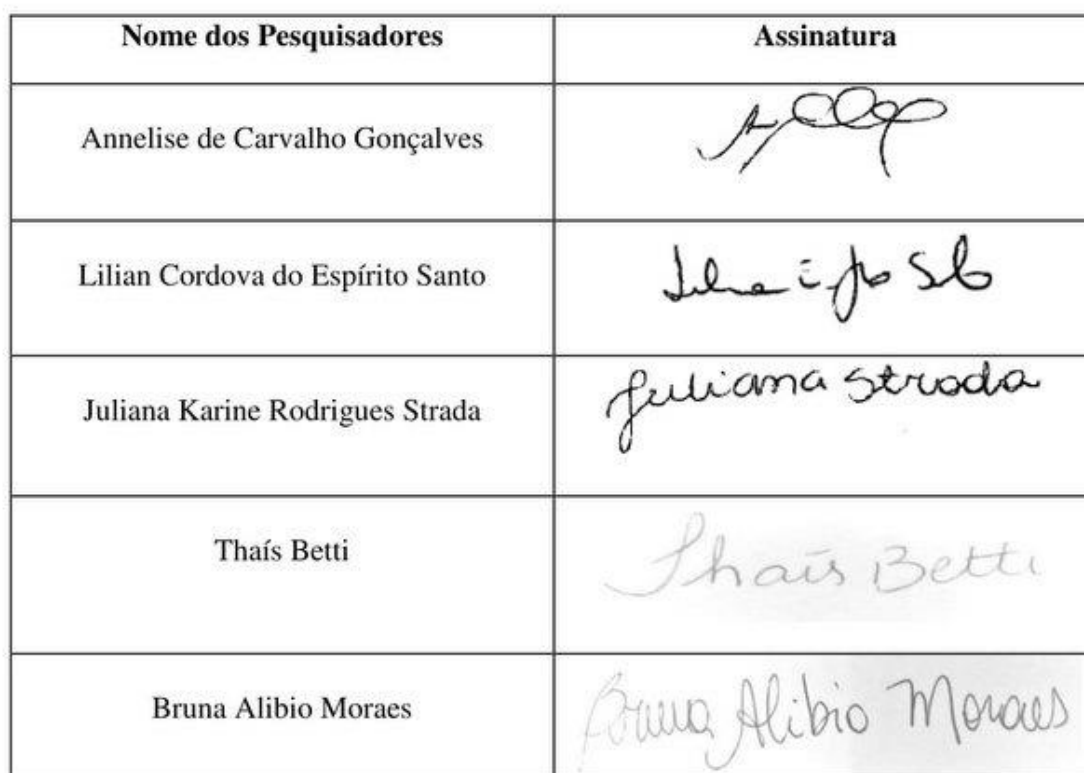 Nome dos Pesquisadores Assinatura
Annelise de Carvalho Gonçalves
Lilian Cordova do Espírito Santo
Juliana Karine Rodrigues Strada Juliana Strada
Thaís Betti Thaís Betti
Bruna Alibio Moraes Bruna Alibio Moraes